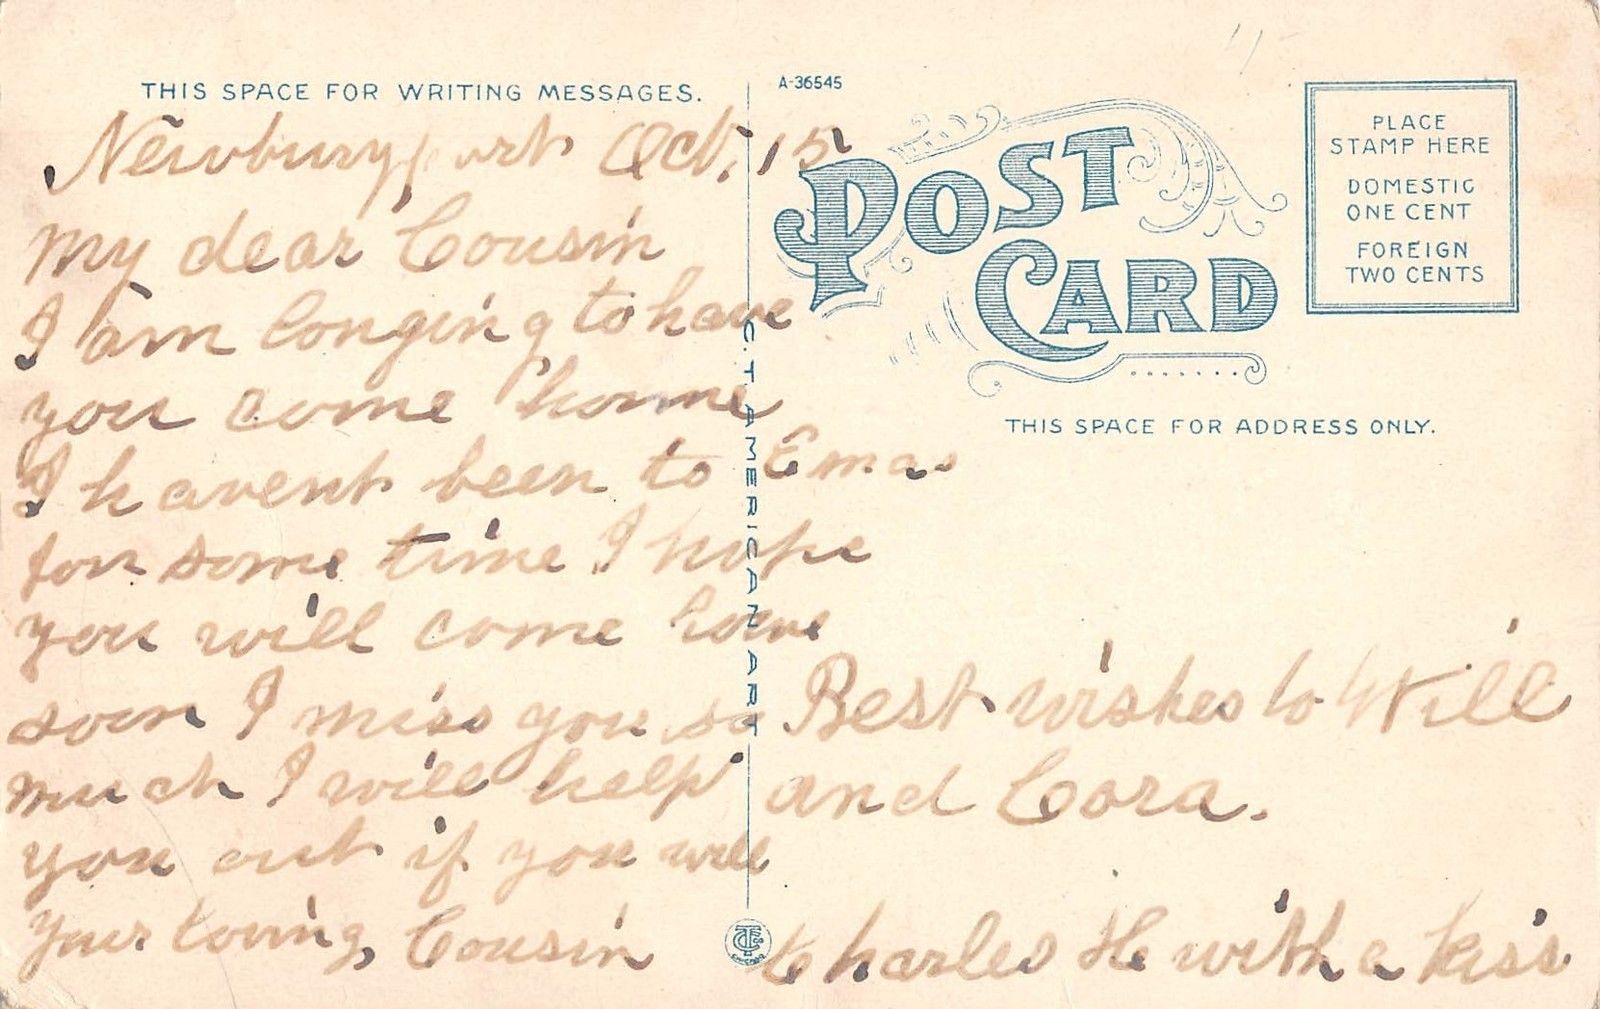 THIS SPACE FOR WRITING MESSAGES.
Newburyport Oct, 15
My dear Cousin
I am longing to have
you come home
I havent been to Emas
for some time I hope
you will come home
soon I miss you so
much I will help
you out if you will
your loving, Cousin
Charles H with a kiss
Best wishes to Will
and Cora.
A-36545
POST CARD
PLACE
STAMP HERE
DOMESTIC
ONE CENT
FOREIGN
TWO CENTS
THIS SPACE FOR ADDRESS ONLY.
C. T. AMERICAN ART